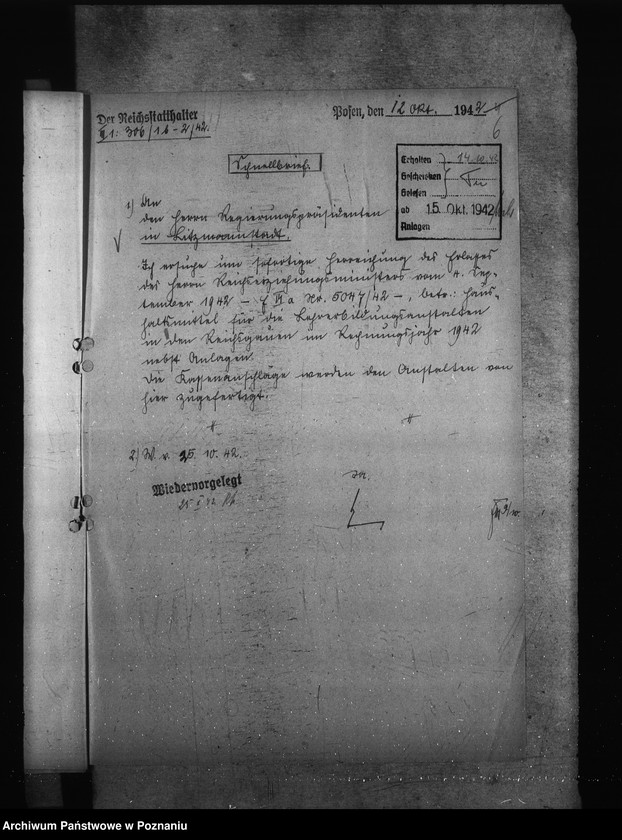 Der Reichsstatthalter
Posen, den 12 Okt. 1942
II 1: 306/16-2/42.
6
Schnellbrief.
Erhalten 14.10.42
Geschrieben
Gelesen
ab 15. Okt. 1942
Anlagen
1) An
den Herrn Regierungspräsidenten
in Litzmannstadt.
Ich ersuche um sofortige Herreichung des Erlasses
des Herrn Reichserziehungsministers vom 4. Sep-
tember 1942 - E VI a Nr. 5047/42 -, betr.: Haus-
haltsmittel für die Lehrerbildungsanstalten
in den Reichsgauen im Rechnungsjahr 1942
nebst Anlagen.
Die Kassenanschläge werden den Anstalten von
hier zugefertigt.
2) W. v. 25. 10. 42.
Wiedervorgelegt
J.A.
Archiwum Państwowe w Poznaniu